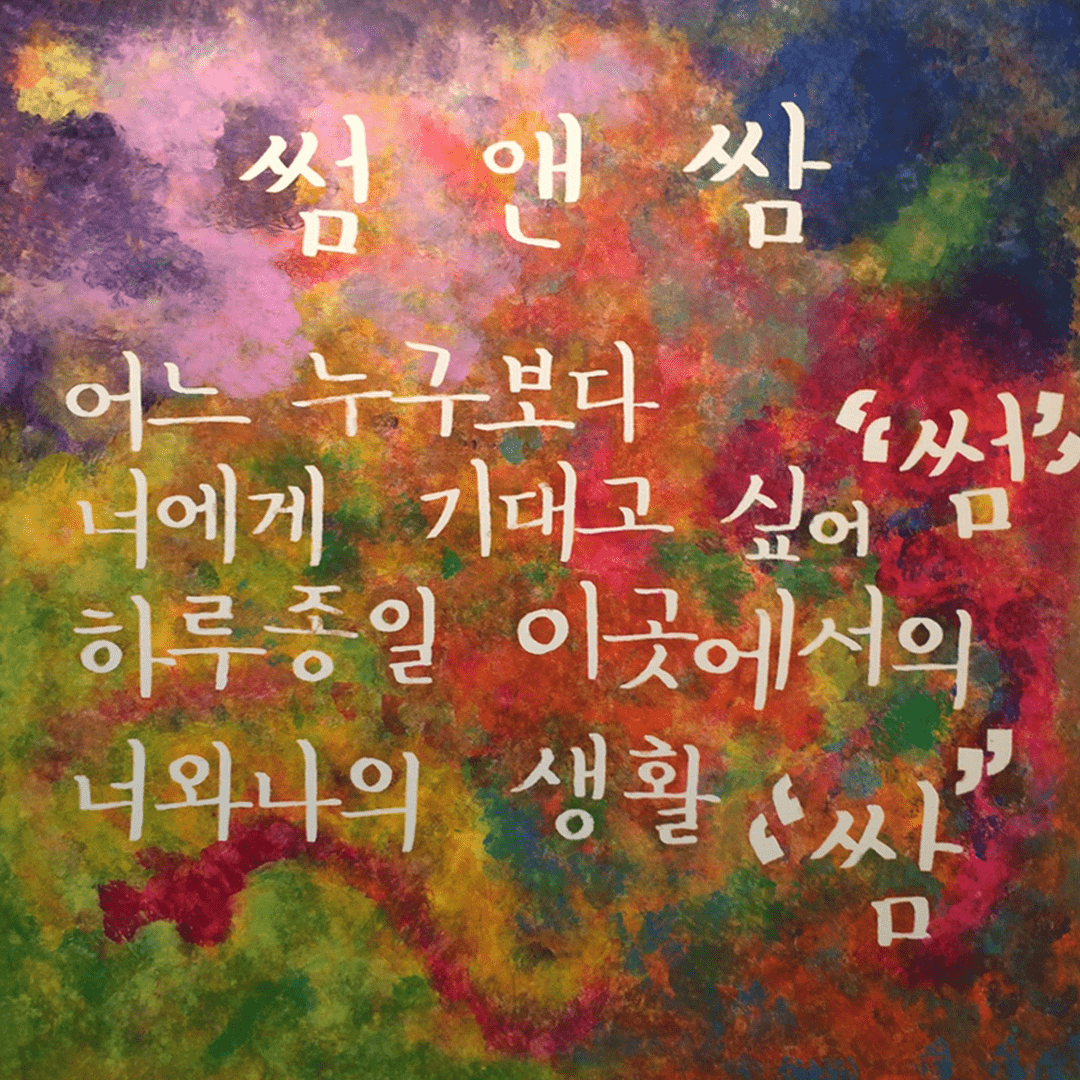 썸 앤 쌈
어느 누구보다 "썸"
너에게 기대고 싶어
하루종일 이곳에서의
너와나의 생활 "쌈"